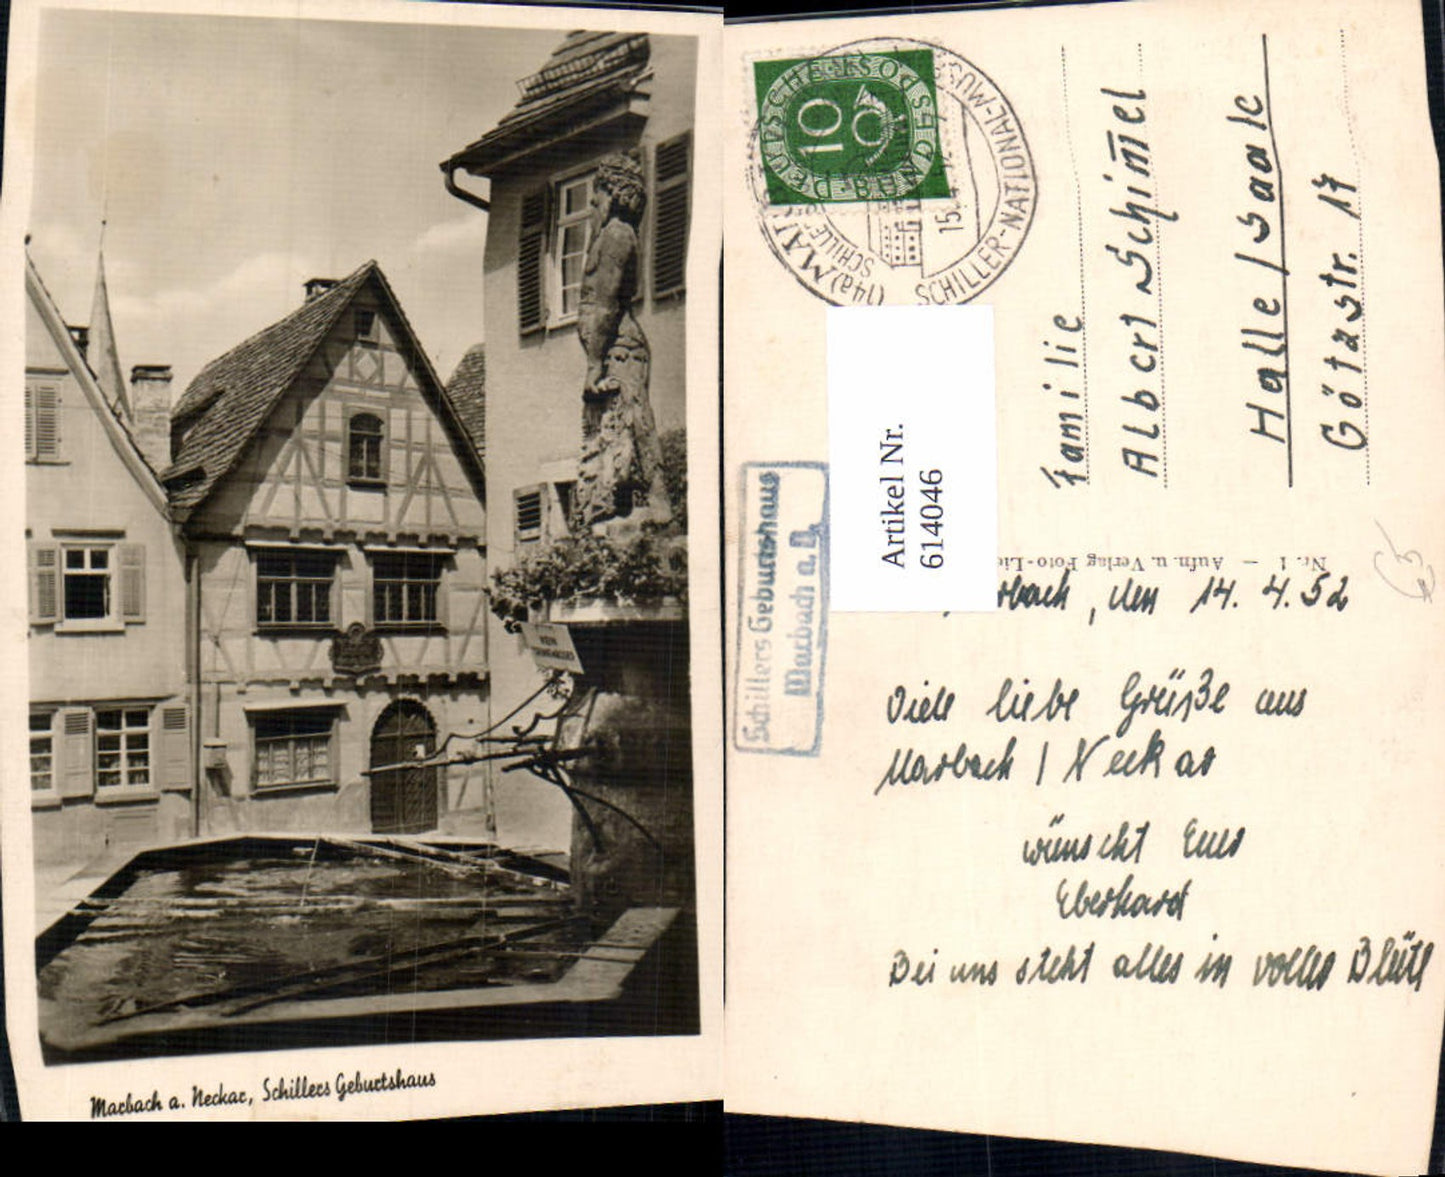 KEIN
Marbach a. Neckar, Schillers Geburtshaus
DEUTSCHE BUNDESPOST
10
SCHILLER-NATIONAL-MUS
(14a) MAR
SCHILLE
15.4.
Artikel Nr.
614046
Schillers Geburtshaus
Marbach a. N.
Familie
Albert Schim̄el
Halle / Saale
Götzstr. 17
Nr. 1 — Aufn. u. Verlag Foto-Lie
rbach, den 14. 4. 52
Viele liebe Grüße aus
Marbach / Neckar
wünscht Euer
Eberhard
Bei uns steht alles in voller Blüte